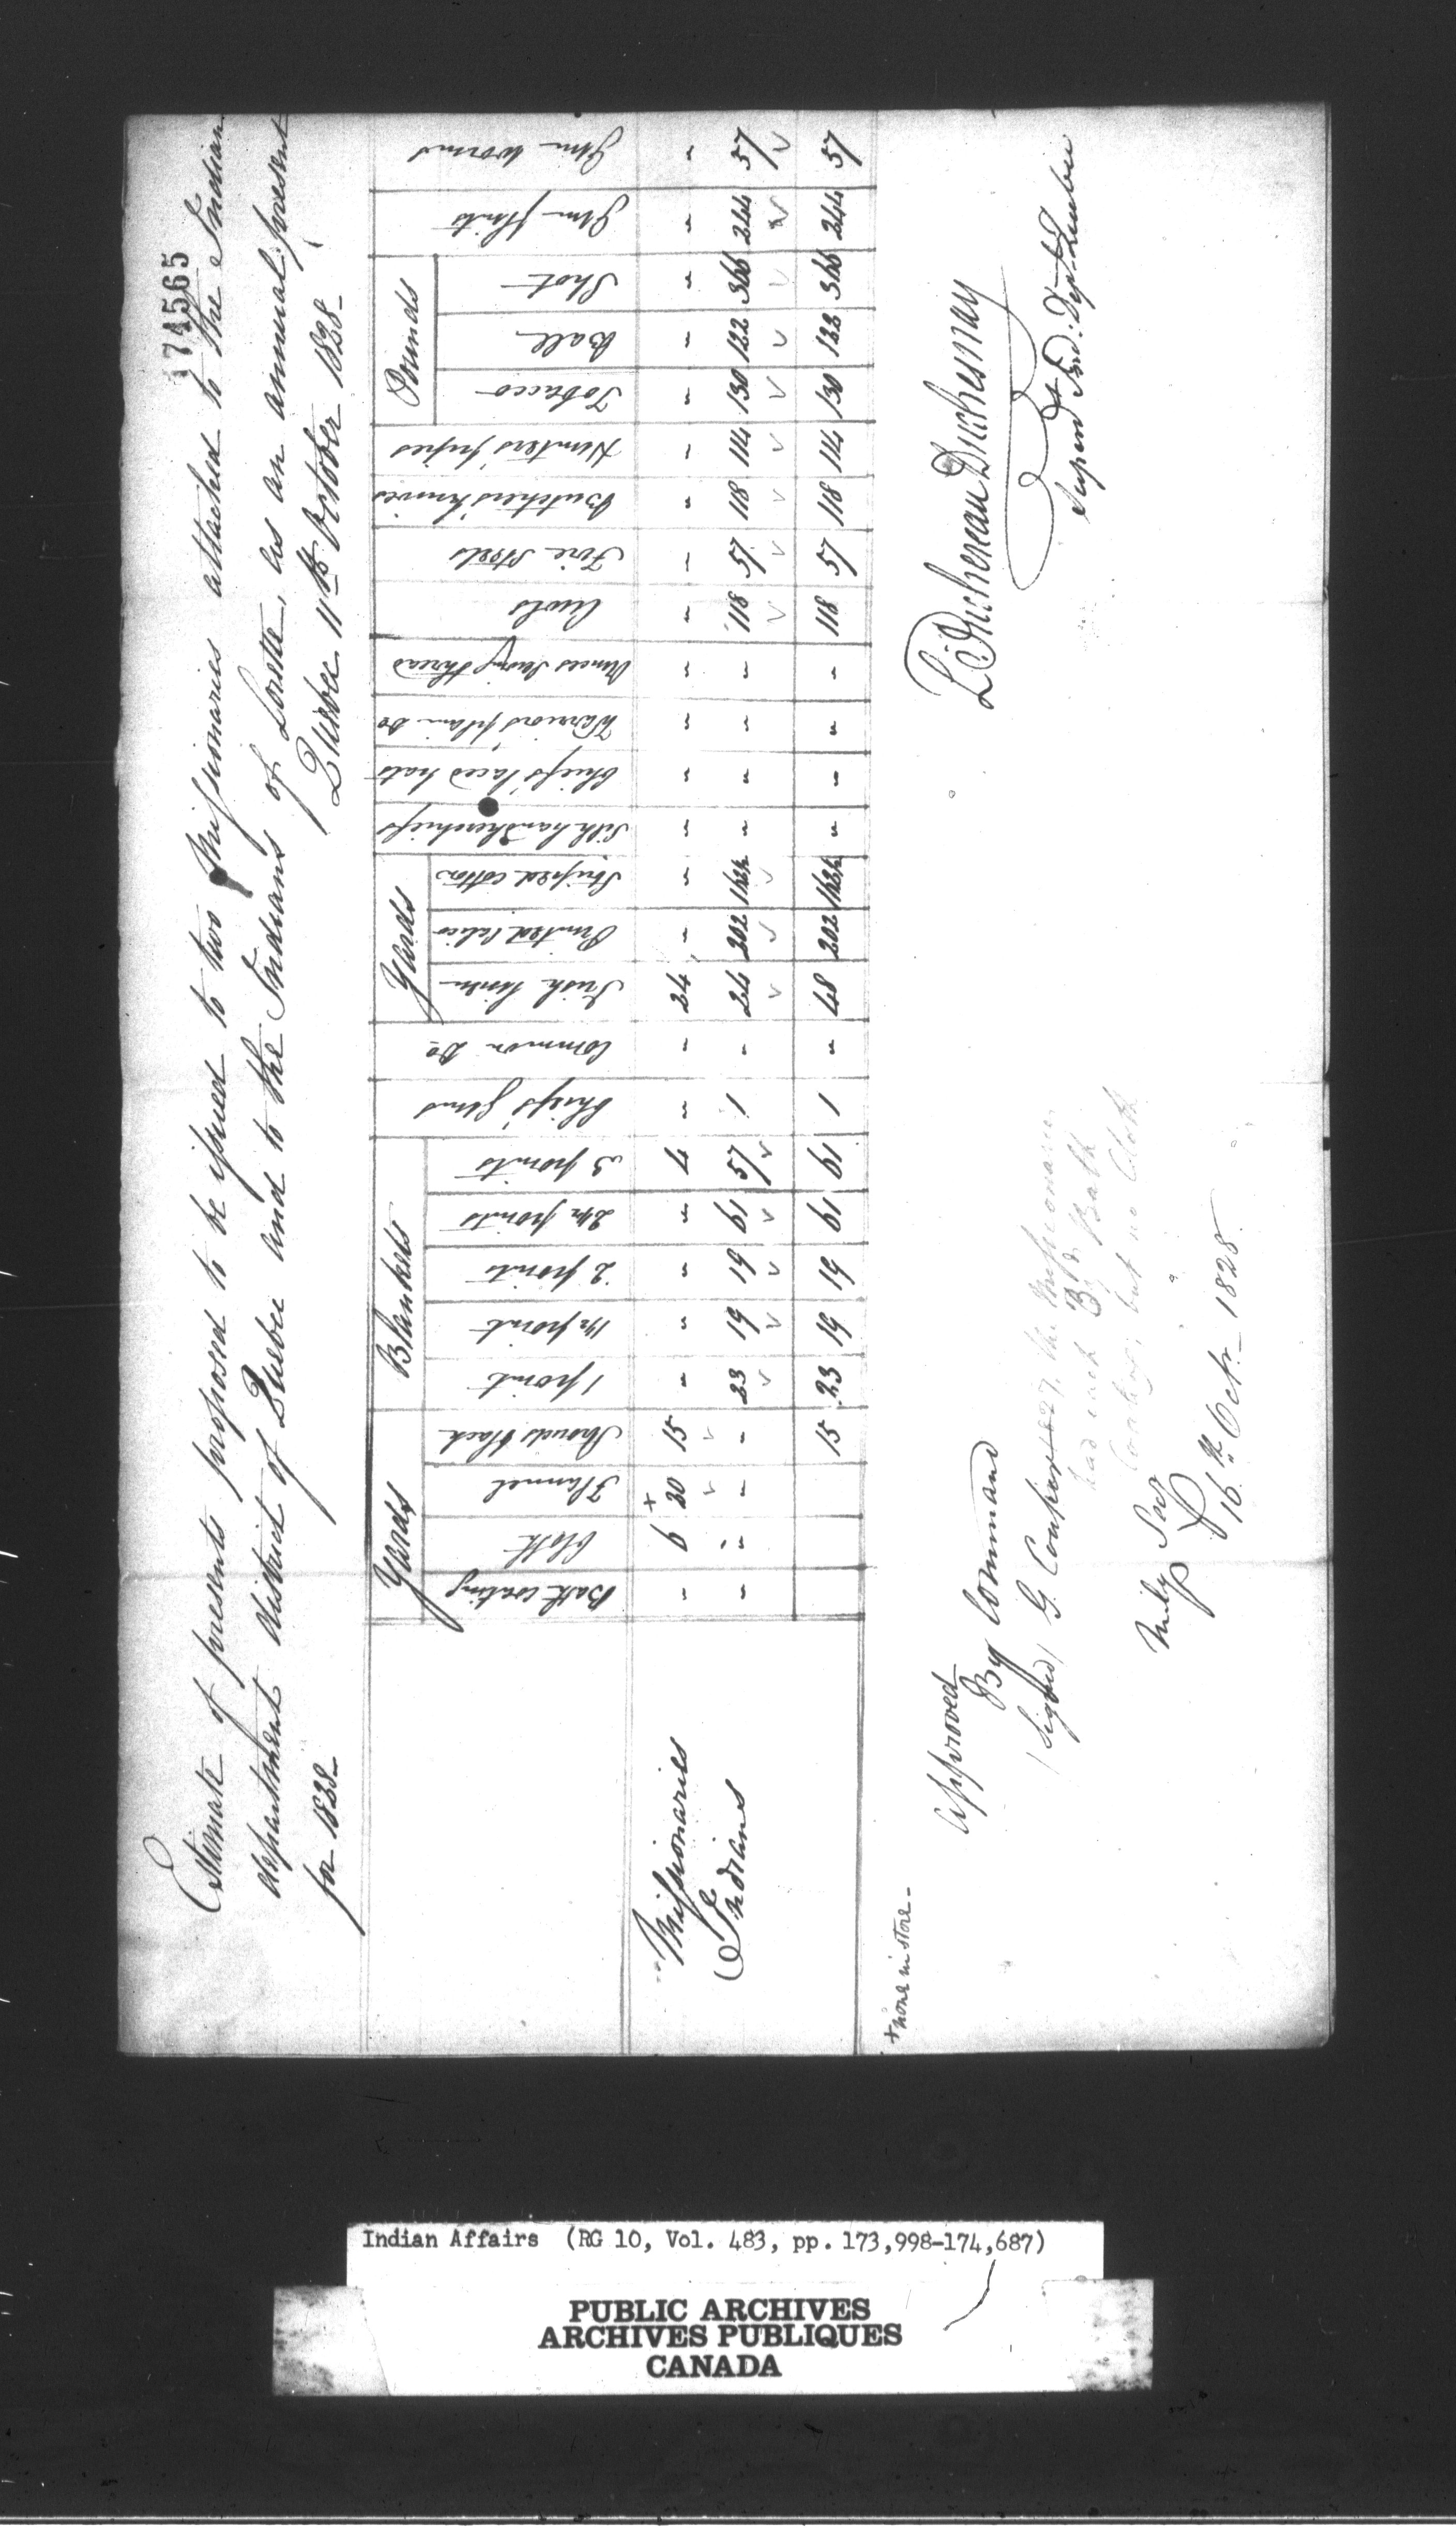 174565
Estimate of presents proposed to be issued to two Missionaries attached to the Indian
department district of Quebec and to the Indians of Lorette, as an annual present
for 1828_
Quebec 11th October 1828_
Yards
Blankets
Yards
Pounds
Bath Coating
Cloth
Flannel
Strouds black
1 point
1 1/2 point
2 points
2 1/2 points
3 points
Chiefs' Guns
Common Do
Irish linen
Printed Calico
Striped cotton
Silk handkerchiefs
Chiefs' laced hats
Warriors plain Do
Ounces sewing thread
Awls
Fire Steels
Butchers knives
Hunters pipes
Tobacco
Ball
Shot
Gun flints
Gun worms
Missionaries " 6 +20 15 " " " " 4 " " 24 " " " " " " " " " " " " " " "
Indians " " " " 23 19 19 61 57 1 " 24 202 143 1/2 " " " " 118 57 118 114 130 122 366 244 57
15 23 19 19 61 61 1 " 48 202 143 1/2 " " " " 118 57 118 114 130 122 366 244 57
+ none in store_
L. Juchereau Duchesnay
Superd Ind: Dept Quebec
Approved
By Command
(Signed) G. Couper
1827. the Missionaries
had each By Bath
Coating, but no Cloth
Mily Secy
16th Octr_ 1828
Indian Affairs (RG 10, Vol. 483, pp. 173,998-174,687)
PUBLIC ARCHIVES
ARCHIVES PUBLIQUES
CANADA